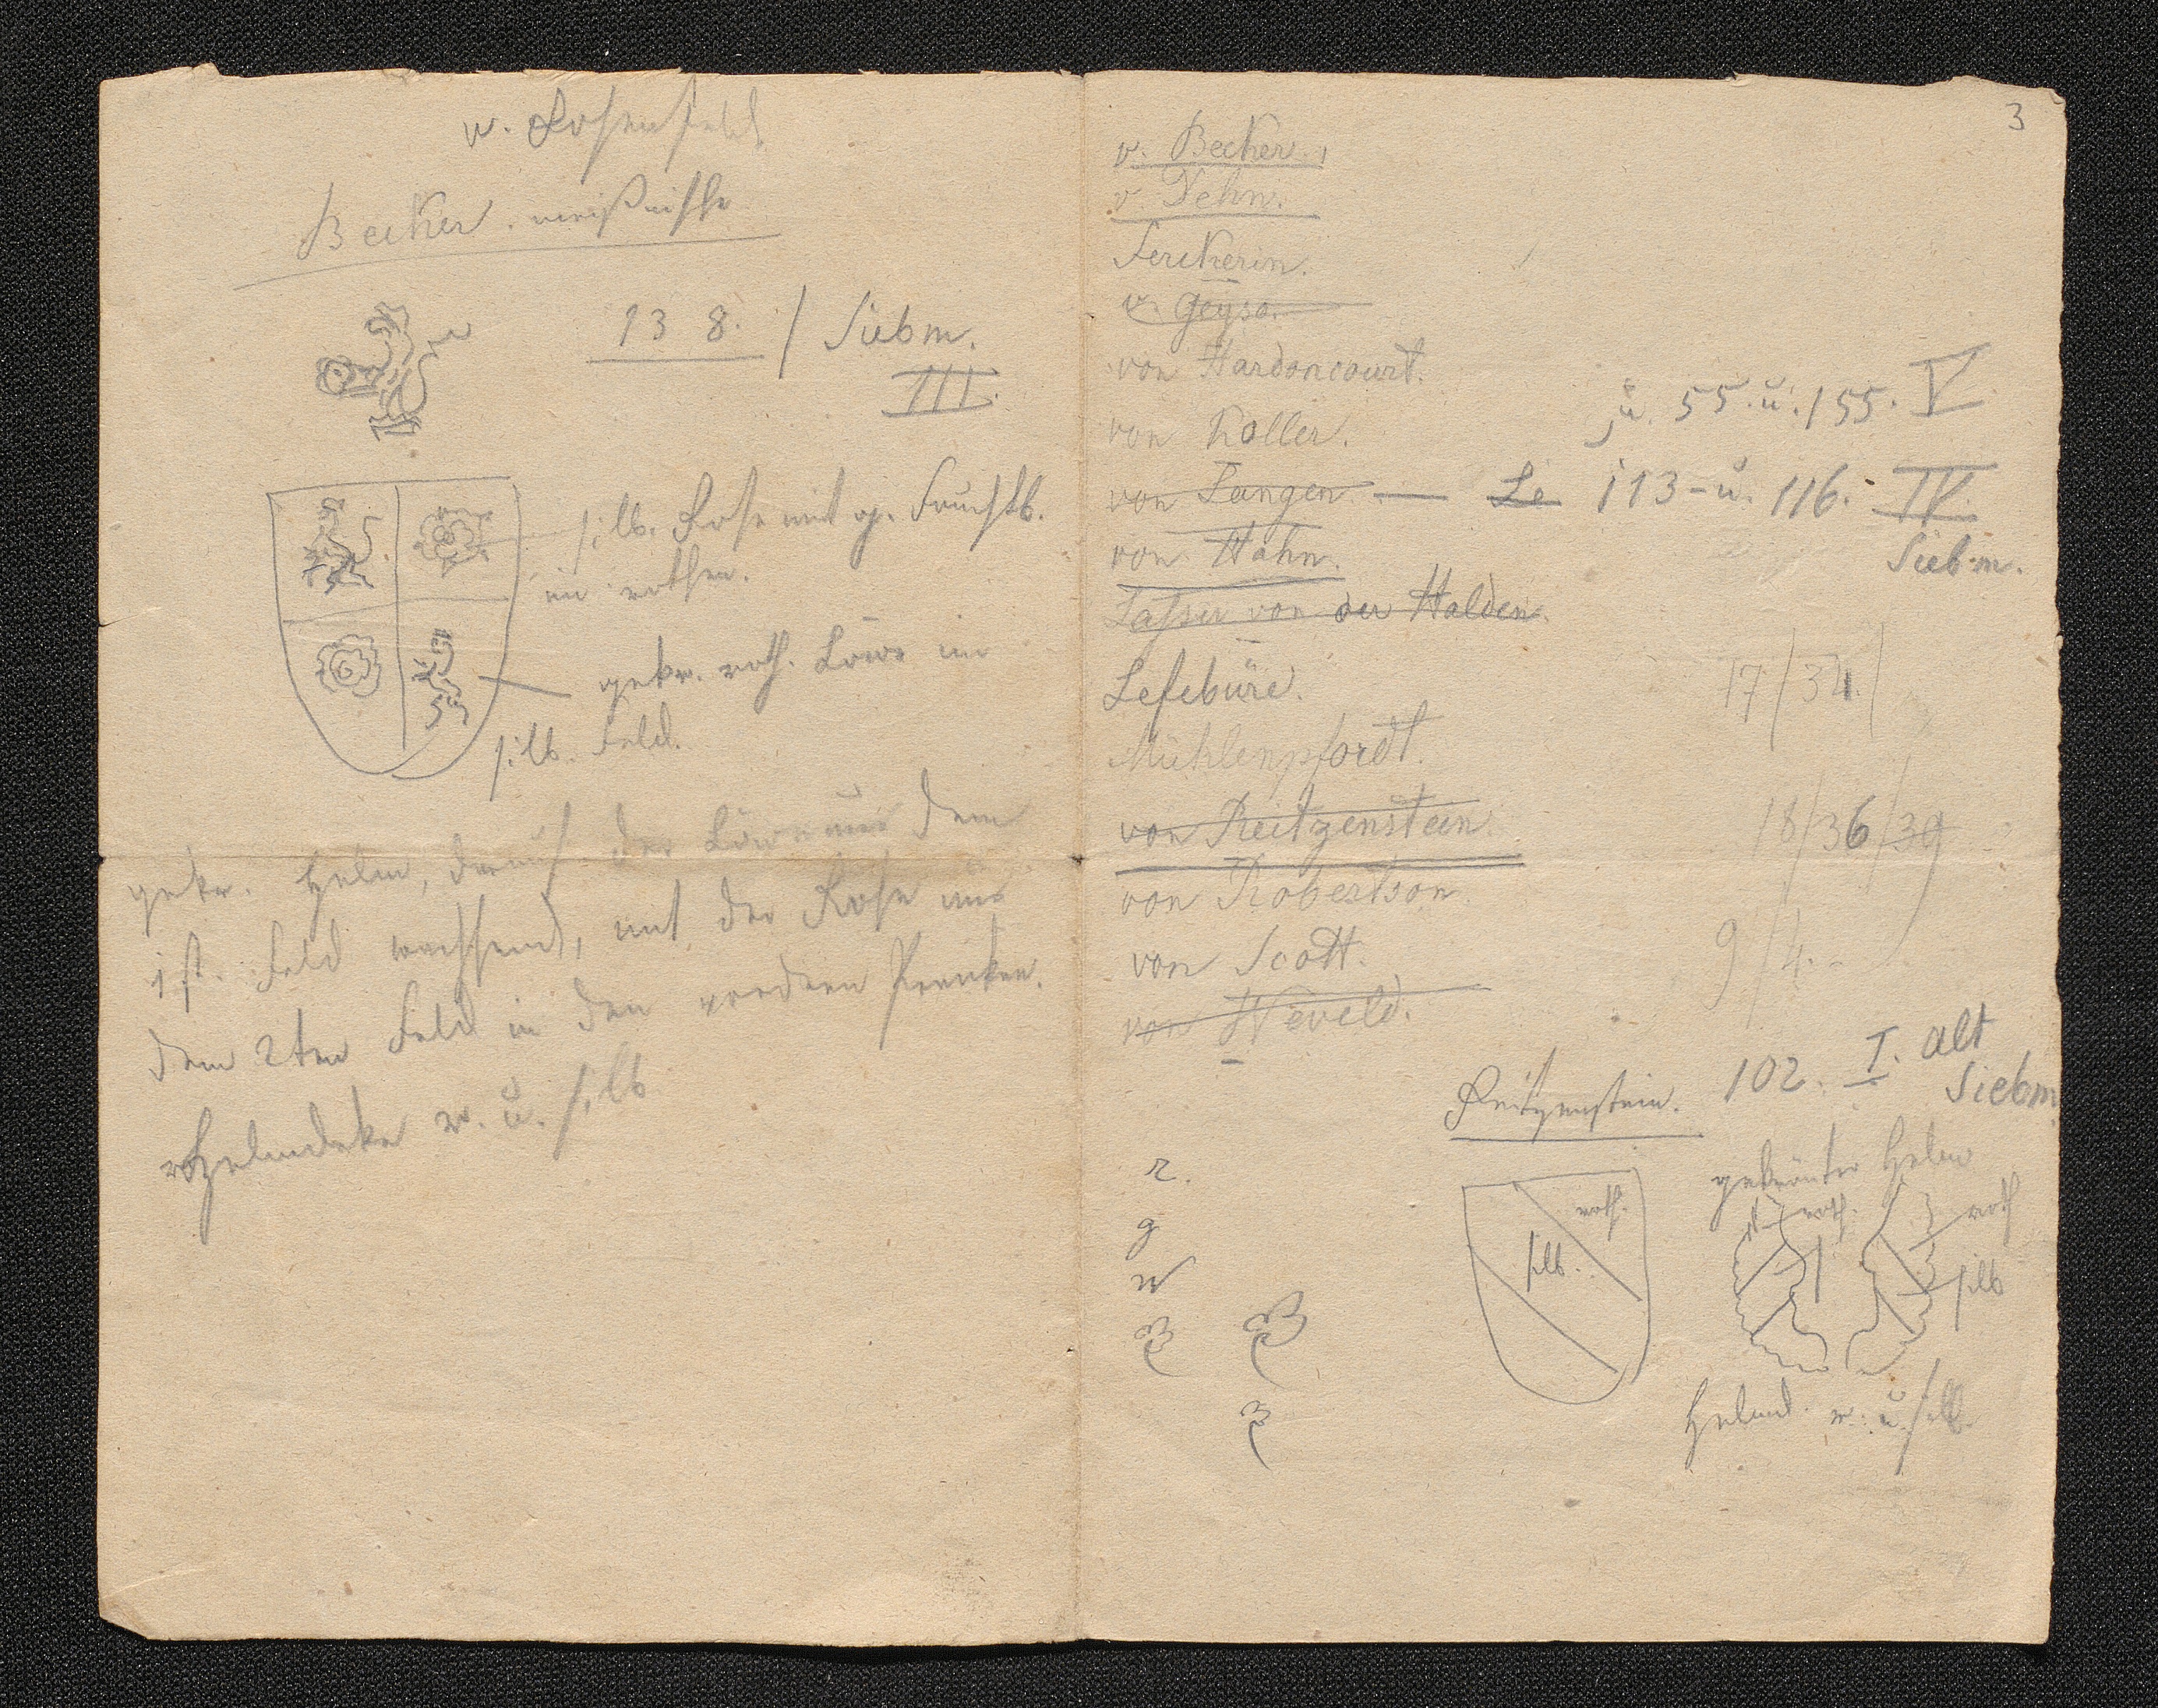 v. Rosenfeld
Becker. meißnische
138. / Siebm.
III.
silb. Rose mit g. Fruchtb.
im rothen.
gekr. roth. Löwe im
silb. Feld.
gekr. Helm, darauf der Löwe aus dem
1st. Feld wachsend, mit der Rose aus
dem 2ten Feld in den vordern Pranken.
Helmdeke r. u. silb
3
v. Becker.
v Dehn.
Ferckerin.
v. Geyso.
von Hardoncourt.
von Koller.
u. 55. u. 155. V
von Langen — Le 113 - u. 116. IV.
Siebm.
von Hahn.
Lasser von der Halden.
Lefebüre.
17/34/
Mühlenpfordt.
von Reitzenstein
18/36/39
von Robertson.
von Scott.
9/4.-
von Weveld.
Reitzenstein. 102. I. alt
Siebm
gekrönter Helm
r.
g
w
roth.
silb.
roth.
roth
silb
Helmd. r. u. silb.